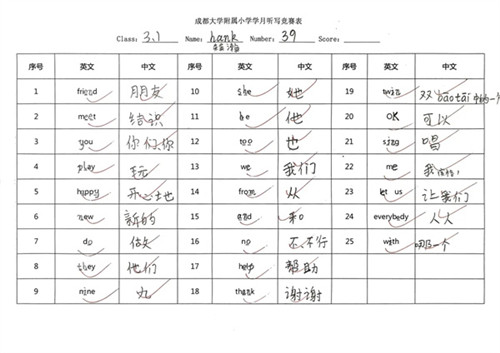 成都大学附属小学学月听写竞赛表
Class: 3.1 Name: hank Number: 39 Score:
序号 英文 中文 序号 英文 中文 序号 英文 中文
1 friend 朋友 10 she 她 19 twin 双bāo tāi 中的一个
2 meet 结识 11 he 他 20 OK 可以
3 you 你们,你 12 too 也 21 sing 唱
4 play 玩 13 we 我们 22 me 我
5 happy 开心地 14 from 从 23 let us 让我们
6 new 新的 15 and 和 24 everybody 人人
7 do 做 16 no 不行 25 with 一个
8 they 他们 17 help 帮助
9 nine 九 18 thank 谢谢